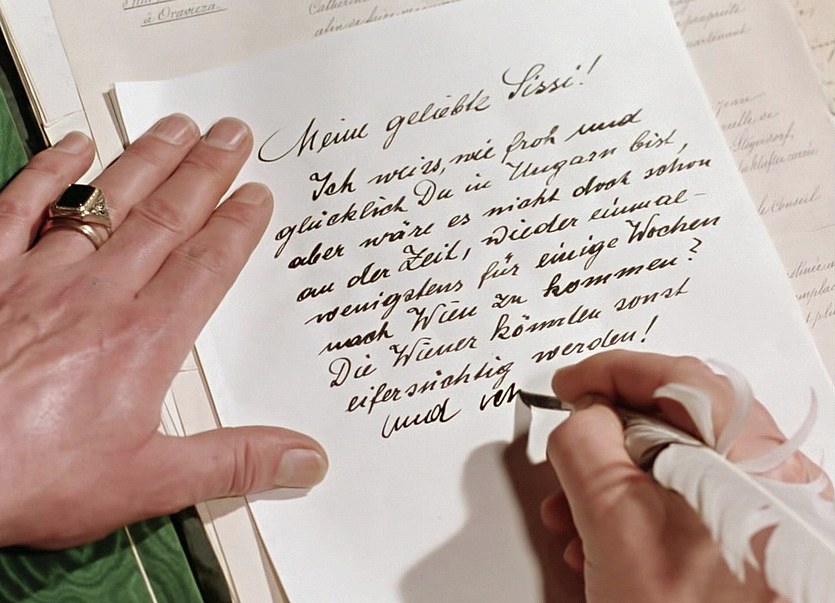 à Oravicza.
Meine geliebte Sissi!
Ich weiss, wie froh und
glücklich Du in Ungarn bist,
aber wäre es nicht doch schon
an der Zeit, wieder einmal-
wenigstens für einige Wochen
nach Wien zu kommen?
Die Wiener könnten sonst
eifersüchtig werden!
und ich
le Conseil